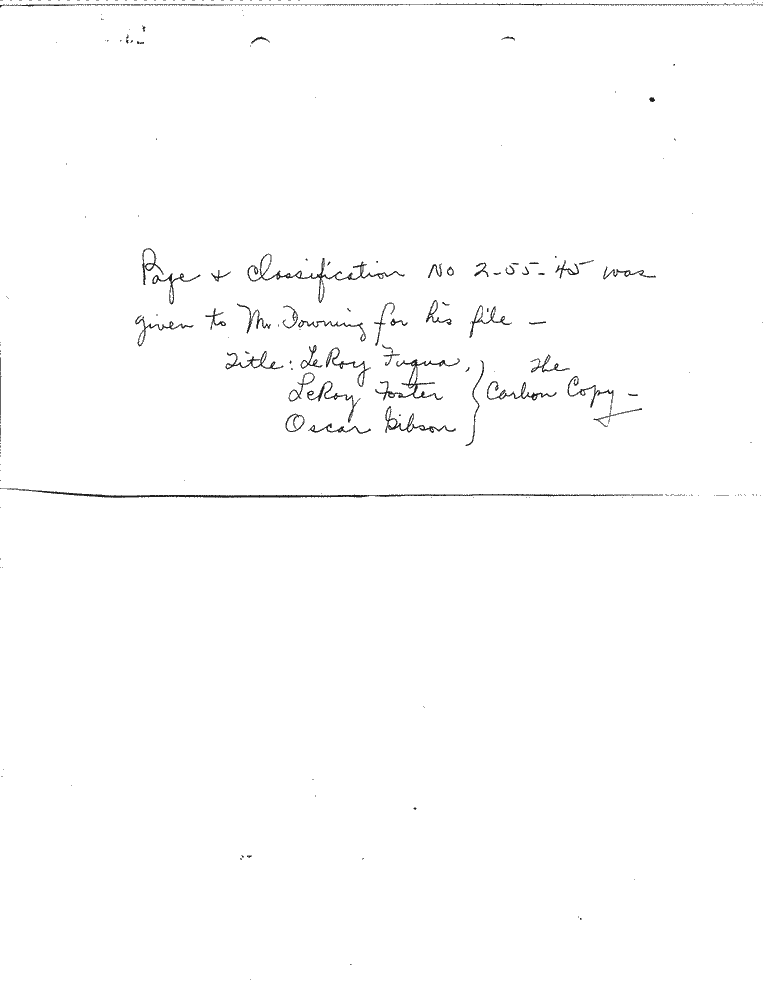 Page & Classification No 2-55-45 was
given to Mr. Downing for his file —
Title: LeRoy Fuqua, } The
LeRoy Foster } Carbon Copy —
Oscar Gibson }